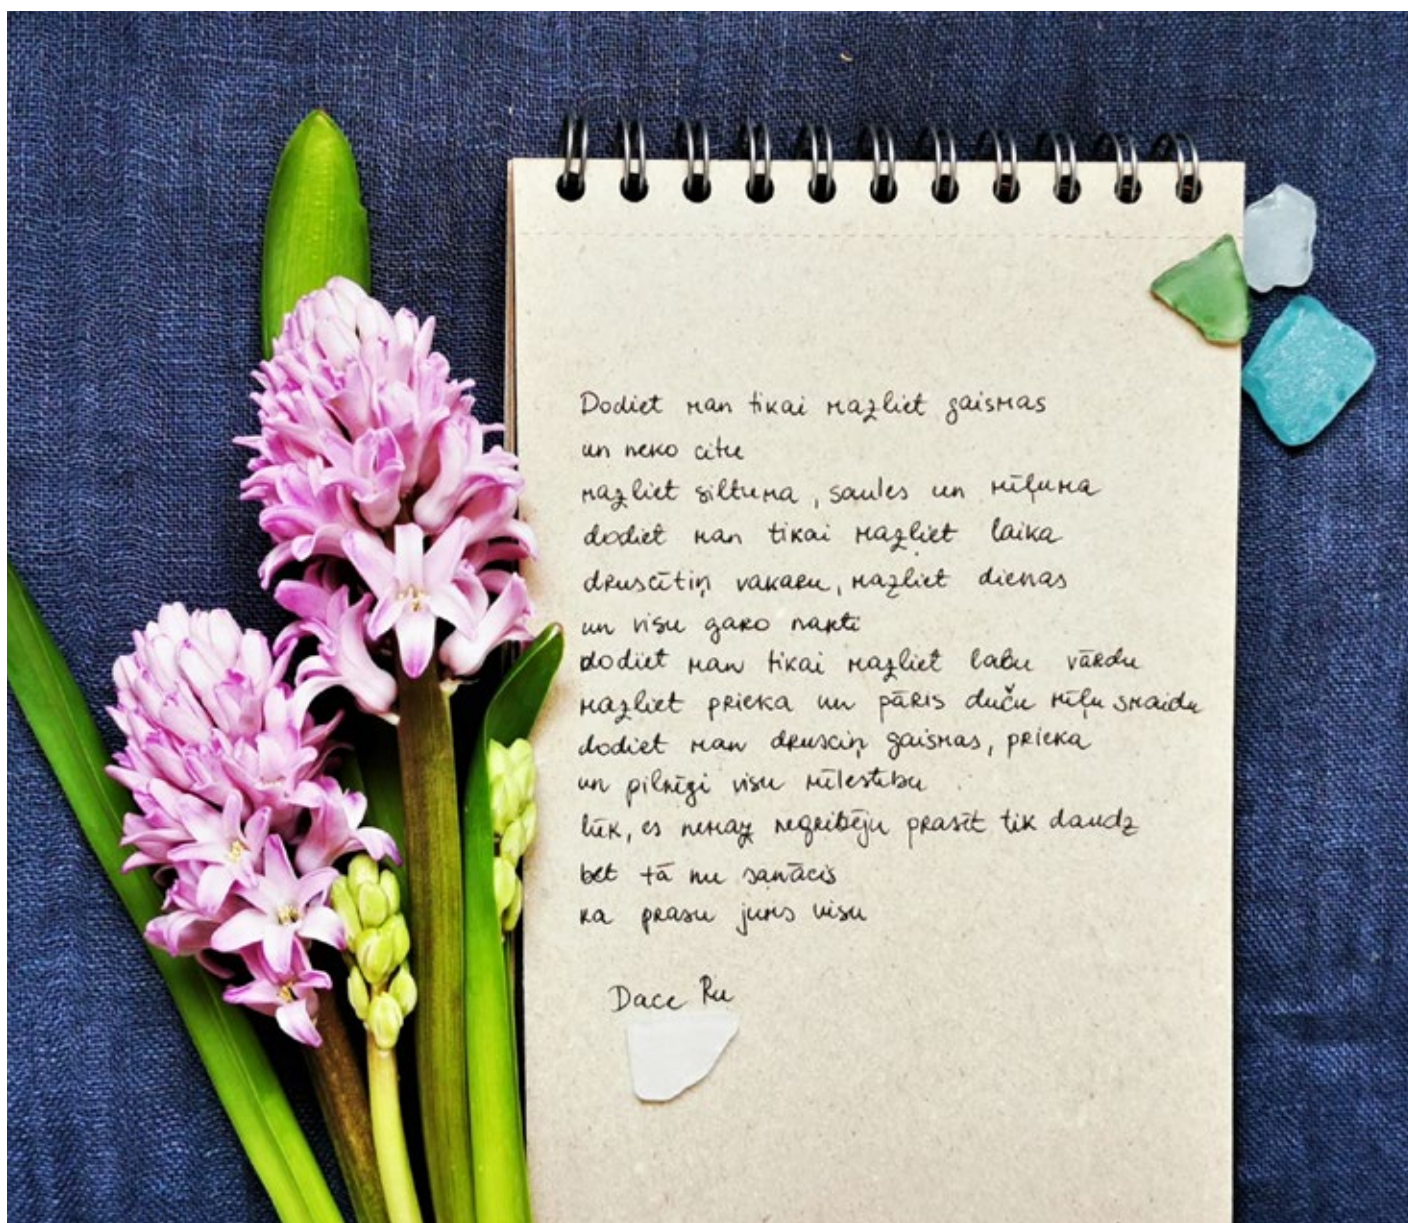 Dodiet man tikai mazliet gaismas
un neko citu
mazliet siltuma, saules un mīļuma
dodiet man tikai mazliet laika
druscītiņ vakaru, mazliet dienas
un visu garo nakti
dodiet man tikai mazliet labu vārdu
mazliet prieka un pāris duču mīļu smaidu
dodiet man drusciņ gaismas, prieka
un pilnīgi visu mīlestību
lūk, es nemaz negribēju prasīt tik daudz
bet tā nu sanācis
ka prasu jums visu
Dace Ru